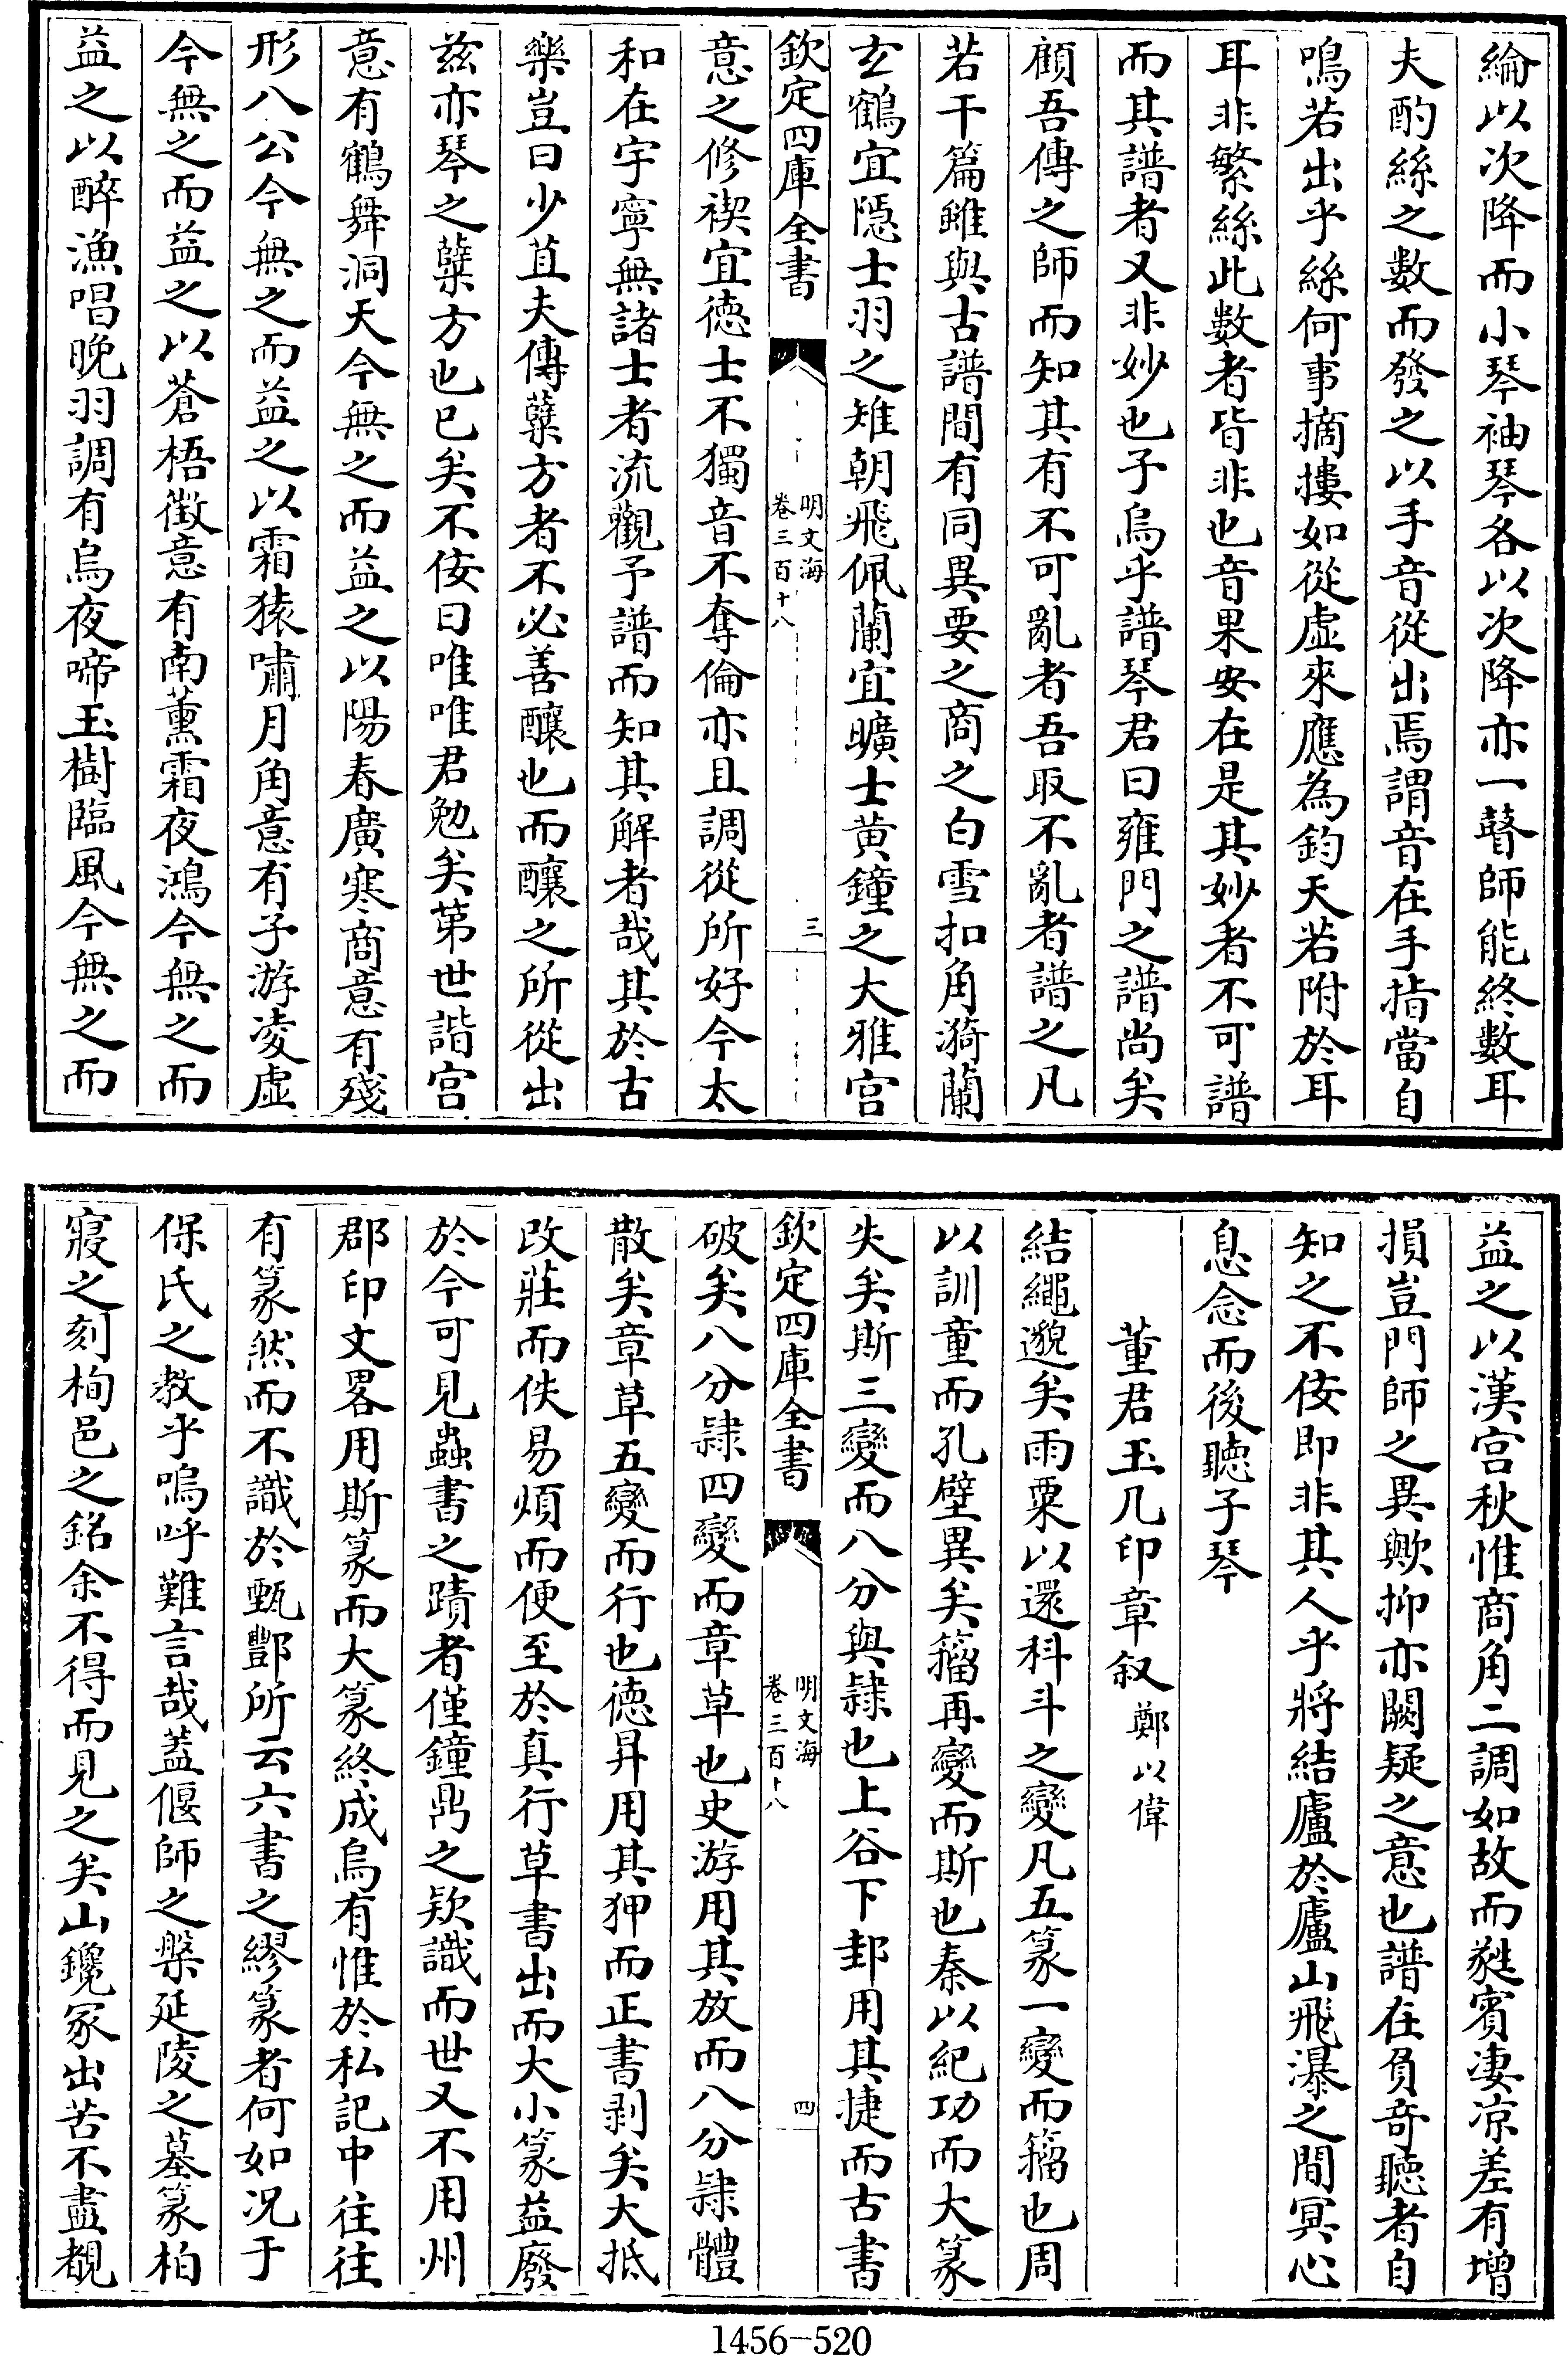 綸以次降而小琴袖琴各以次降亦一瞽師能終數耳
夫酌絲之數而發之以手音從出焉謂音在手指當自
鳴若出乎絲何事摘摟如從虛來應為鈞天若附於耳
耳非繁絲此數者皆非也音果安在是其妙者不可譜
而其譜者又非妙也子烏乎譜琴君曰雍門之譜尚矣
顧吾傳之師而知其有不可亂者吾取不亂者譜之凡
若干篇雖與古譜間有同異要之商之白雪扣角漪蘭
玄鶴宜隱士羽之雉朝飛佩蘭宜曠士黃鐘之大雅宮
欽定四庫全書
明文海
卷三百十八
三
意之修禊宜德士不獨音不奪倫亦且調從所好今太
和在宇寧無諸士者流觀予譜而知其解者哉其於古
樂豈曰少苴夫傳蘖方者不必善釀也而釀之所從出
茲亦琴之蘖方也已矣不佞曰唯唯君勉矣第世諧宮
意有鶴舞洞天今無之而益之以陽春廣寒商意有殘
形八公今無之而益之以霜猿嘯月角意有子游凌虛
今無之而益之以蒼梧徵意有南薰霜夜鴻今無之而
益之以醉漁唱晚羽調有烏夜啼玉樹臨風今無之而
益之以漢宮秋惟商角二調如故而蕤賓淒涼差有增
損豈門師之異歟抑亦闕疑之意也譜在負奇聽者自
知之不佞即非其人乎將結廬於廬山飛瀑之間冥心
息念而後聽子琴
董君玉几印章叙 鄭以偉
結繩邈矣雨粟以還科斗之變凡五篆一變而籀也周
以訓童而孔壁異矣籀再變而斯也秦以紀功而大篆
失矣斯三變而八分與隸也上谷下邽用其捷而古書
欽定四庫全書
明文海
卷三百十八
四
破矣八分隸四變而章草也史游用其放而八分隸體
散矣章草五變而行也德昇用其狎而正書剥矣大抵
改莊而佚易煩而便至於真行草書出而大小篆益廢
於今可見蟲書之蹟者僅鐘鼎之欵識而世又不用州
郡印文畧用斯篆而大篆終成烏有惟於私記中往往
有篆然而不識於甄酆所云六書之繆篆者何如况于
保氏之教乎嗚呼難言哉蓋偃師之槃延陵之墓篆柏
寢之刻栒邑之銘余不得而見之矣山鑱冢出苦不盡覩
1456-520